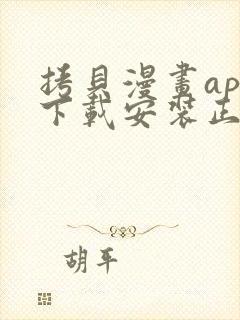 拷貝漫畫ap
下載安裝正
胡平